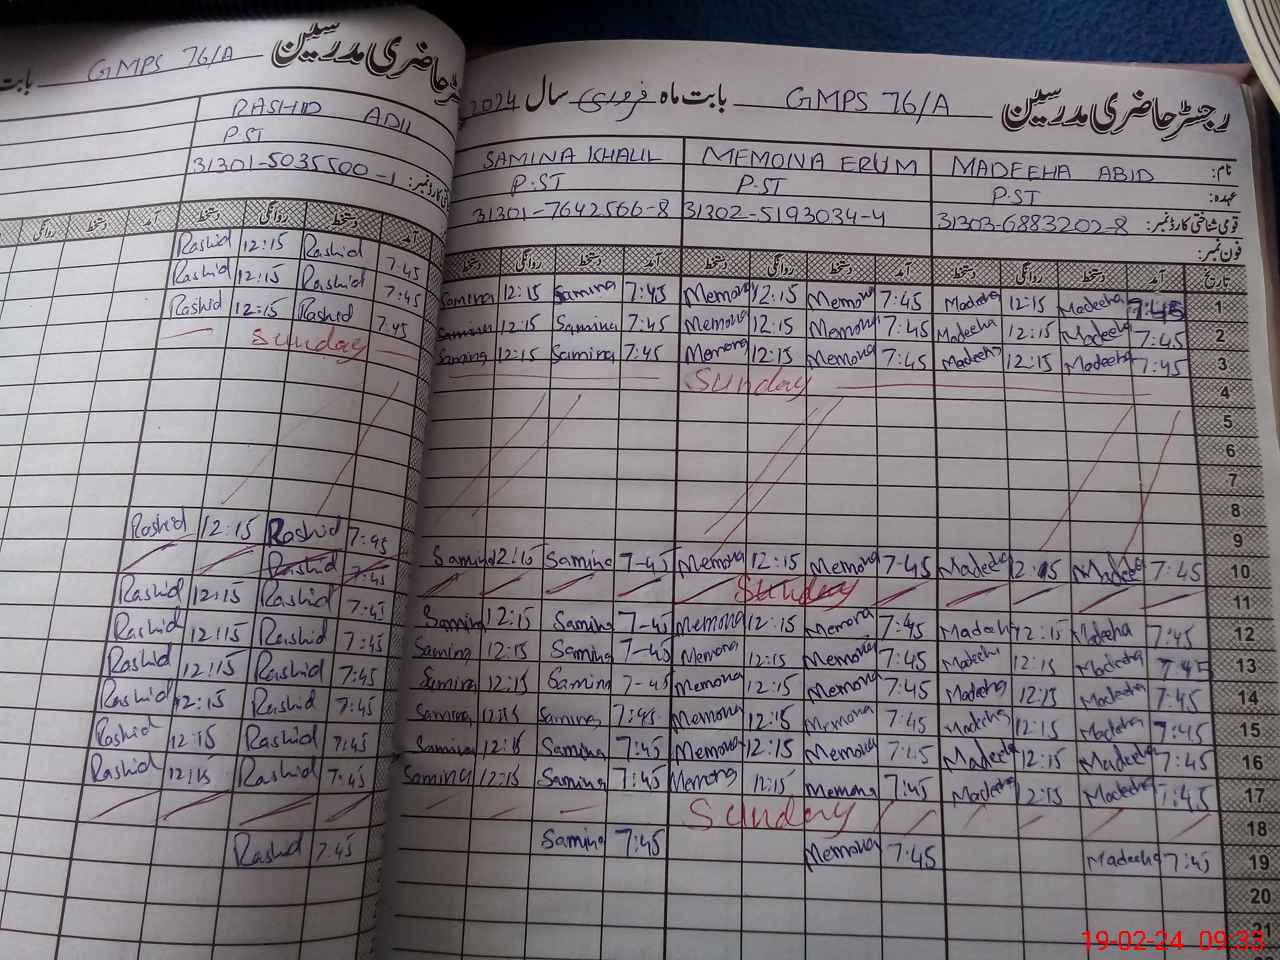 رجسٹر حاضری مدرسین GMPS 76/A بابت ماہ فروری سال 2024
نام: MADEEHA ABID MEMONA ERUM SAMINA KHALIL
عہدہ: P.ST P.ST P.ST
قومی شناختی کارڈ نمبر: 31303-6883202-8 31302-5193034-4 31301-7642566-8
فون نمبر:
تاریخ آمد دستخط روانگی دستخط آمد دستخط روانگی دستخط آمد دستخط روانگی دستخط
1 7:45 Madeeha 12:15 Madeeha 7:45 Memona 12:15 Memona 7:45 Samina 12:15 Samina
2 7:45 Madeeha 12:15 Madeeha 7:45 Memona 12:15 Memona 7:45 Samina 12:15 Samina
3 7:45 Madeeha 12:15 Madeeha 7:45 Memona 12:15 Memona 7:45 Samina 12:15 Samina
4 Sunday
5
6
7
8
9
10 7:45 Madeeha 12:15 Madeeha 7:45 Memona 12:15 Memona 7-45 Samina 12:15 Samina
11 Sunday
12 7:45 Madeeha 12:15 Madeeha 7:45 Memona 12:15 Memona 7-45 Samina 12:15 Samina
13 7:45 Madeeha 12:15 Madeeha 7:45 Memona 12:15 Memona 7-45 Samina 12:15 Samina
14 7:45 Madeeha 12:15 Madeeha 7:45 Memona 12:15 Memona 7-45 Samina 12:15 Samina
15 7:45 Madeeha 12:15 Madeeha 7:45 Memona 12:15 Memona 7:45 Samina 12:15 Samina
16 7:45 Madeeha 12:15 Madeeha 7:45 Memona 12:15 Memona 7:45 Samina 12:15 Samina
17 7:45 Madeeha 12:15 Madeeha 7:45 Memona 12:15 Memona 7:45 Samina 12:15 Samina
18 Sunday
19 7:45 Madeeha 7:45 Memona 7:45 Samina
20
21
حاضری مدرسین GMPS 76/A بابت
RASHID ADIL
P ST
کارڈ نمبر: 31301-5035500-1
آمد دستخط روانگی دستخط آمد دستخط روانگی
7:45 Rashid 12:15 Rashid
7:45 Rashid 12:15 Rashid
7:45 Rashid 12:15 Rashid
Sunday
7:45 Rashid 12:15 Rashid
7:45 Rashid
7:45 Rashid 12:15 Rashid
7:45 Rashid 12:15 Rashid
7:45 Rashid 12:15 Rashid
7:45 Rashid 12:15 Rashid
7:45 Rashid 12:15 Rashid
7:45 Rashid 12:15 Rashid
7:45 Rashid
19-02-24 09:33